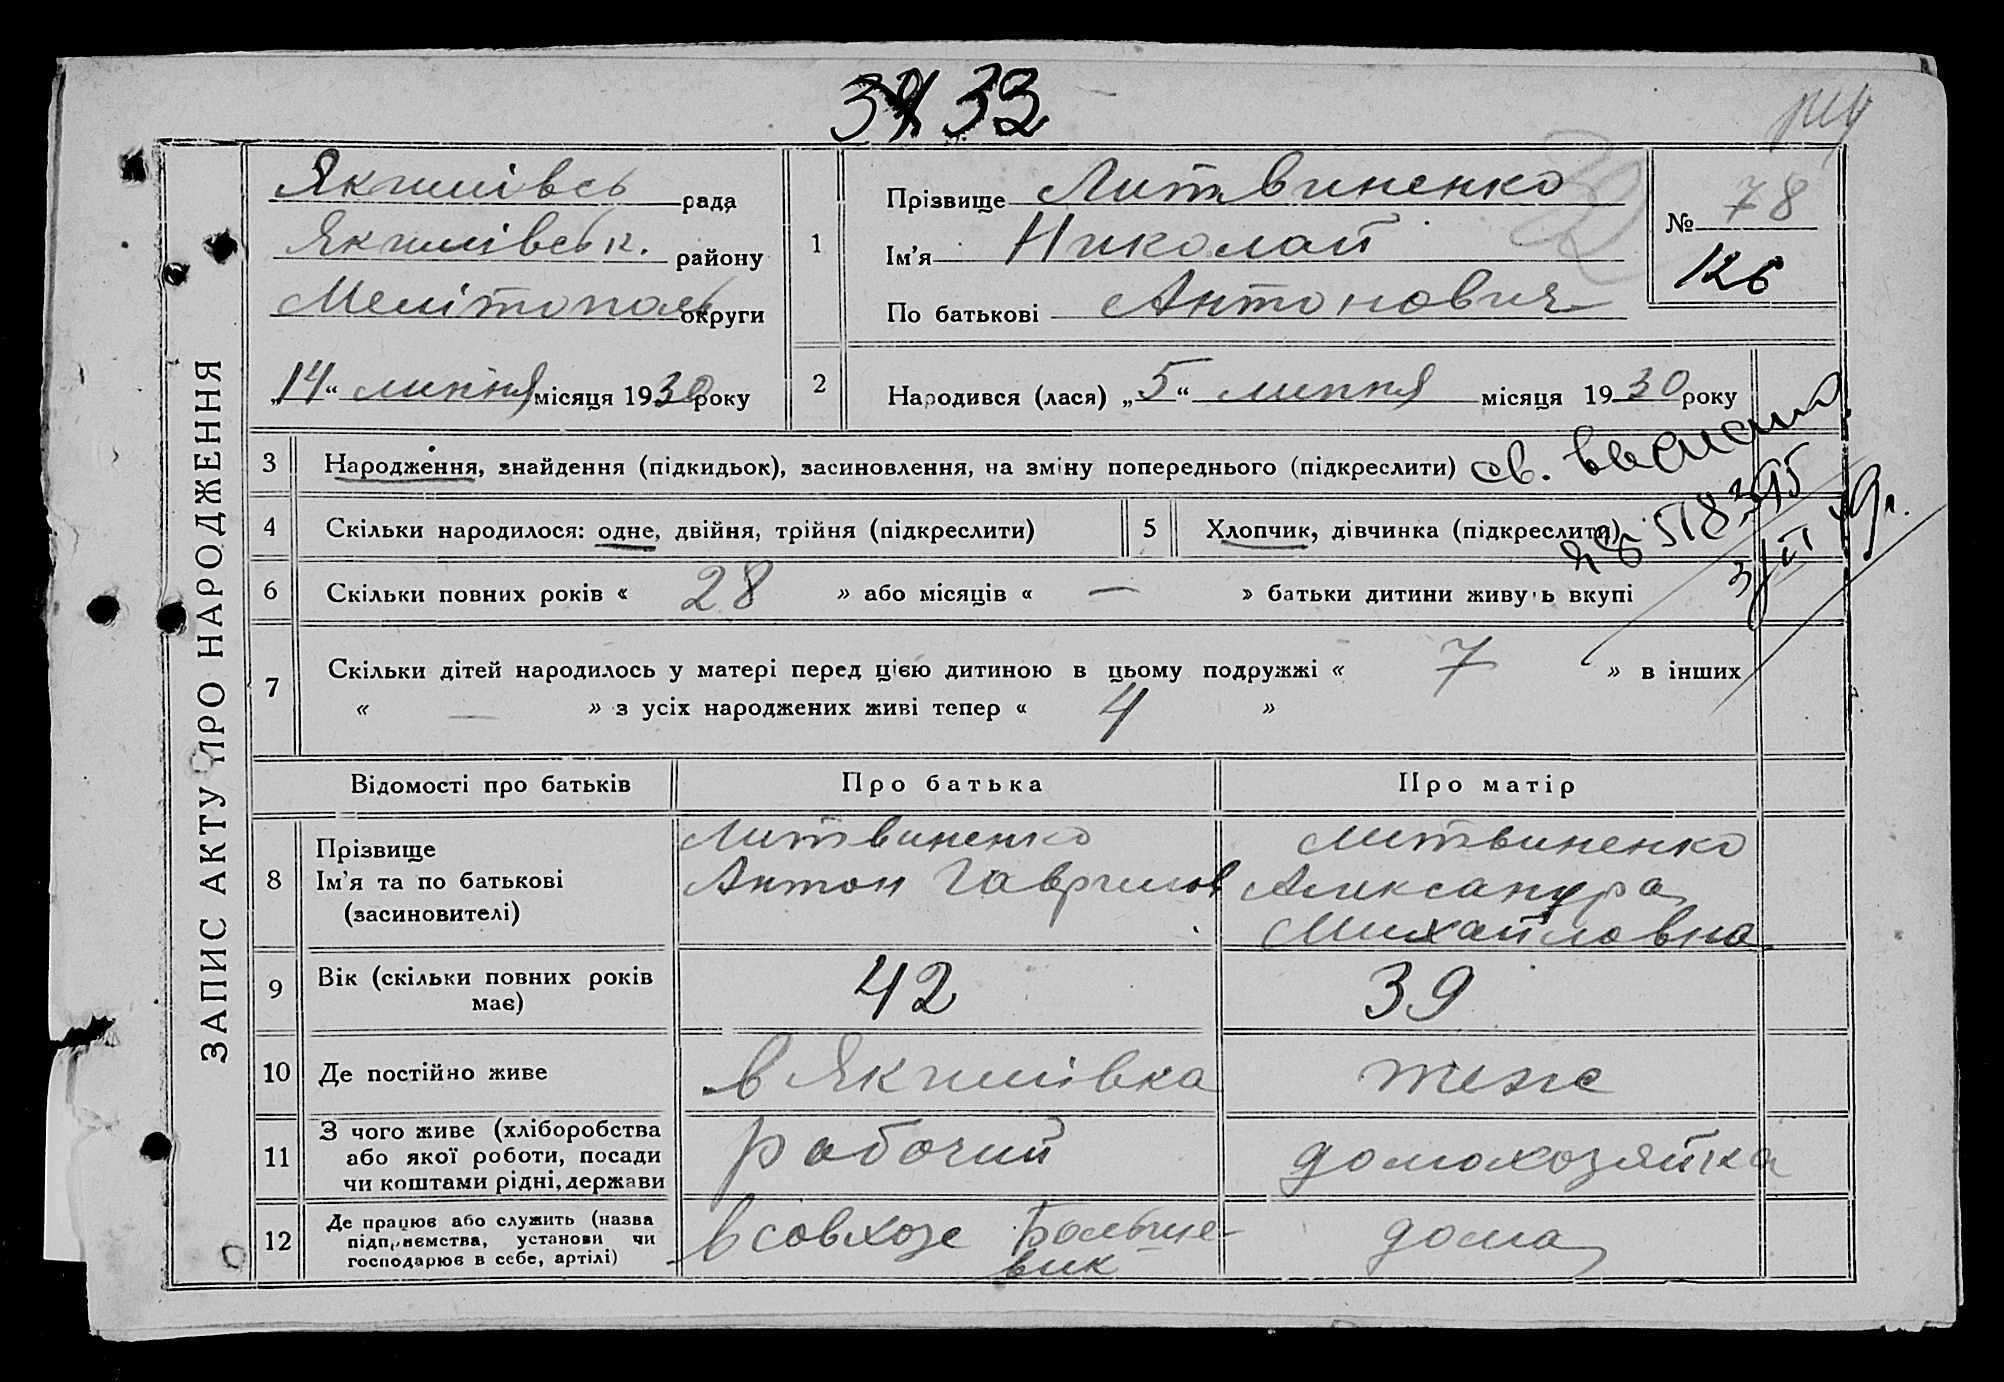 33
ЗАПИС АКТУ ПРО НАРОДЖЕННЯ
Якимівсь рада
Якимівськ. району
Мелітополь округи
„14“ липня місяця 1930 року
1
Прізвище Литвиненко
Ім'я Николай
По батькові Антонович
№ 78
126
2
Народився (лася) „5“ липня місяця 1930 року
3 Народження, знайдення (підкидьок), засиновлення, на зміну попереднього (підкреслити) св.
4 Скільки народилося: одне, двійня, трійня (підкреслити)
5 Хлопчик, дівчинка (підкреслити)
6 Скільки повних років « 28 » або місяців « — » батьки дитини живуть вкупі
7 Скільки дітей народилось у матері перед цією дитиною в цьому подружжі « 7 » в інших
« — » з усіх народжених живі тепер « 4 »
Відомості про батьків Про батька Про матір
8 Прізвище
Ім'я та по батькові
(засиновителі)
Литвиненко
Антон Гаврилов
Литвиненко
Александра
Михайловна
9 Вік (скільки повних років
має)
42
39
10 Де постійно живе
в Якимівка
тоже
11 З чого живе (хліборобства
або якої роботи, посади
чи коштами рідні, держави
рабочий
домохозяйка
12 Де працює або служить (назва
підприємства, установи чи
господарює в себе, артілі)
в совхозе Больше-
вик
дома